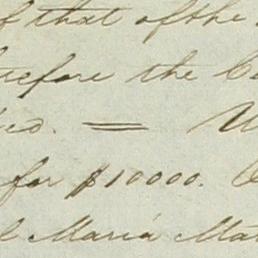 f that of the
before the C
ed. = W
for $10000.
l Maria Mat